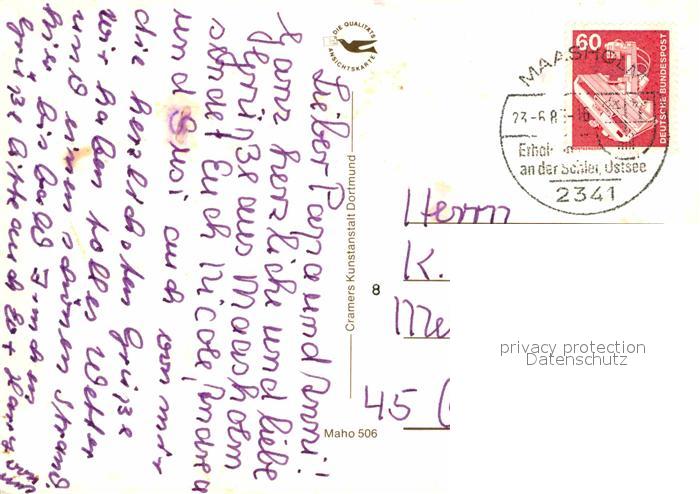 Lieber Papa und Anni!
Ganz herzliche und liebe
Grüße aus Maasholm
sendet Euch Nicole, Andrea
und Susi auch von mir
die herzlichsten Grüße
wir haben tolles Wetter
und einen schönen Strand.
hier bis bald
Grüße
DIE QUALITÄTS
ANSICHTSKARTE
Cramers Kunstanstalt Dortmund
8
Maho 506
60
DEUTSCHE BUNDESPOST
MAASHOLM
23-6.8
an der Schlei, Ostsee
2341
Herrn
K.
45 (
privacy protection
Datenschutz